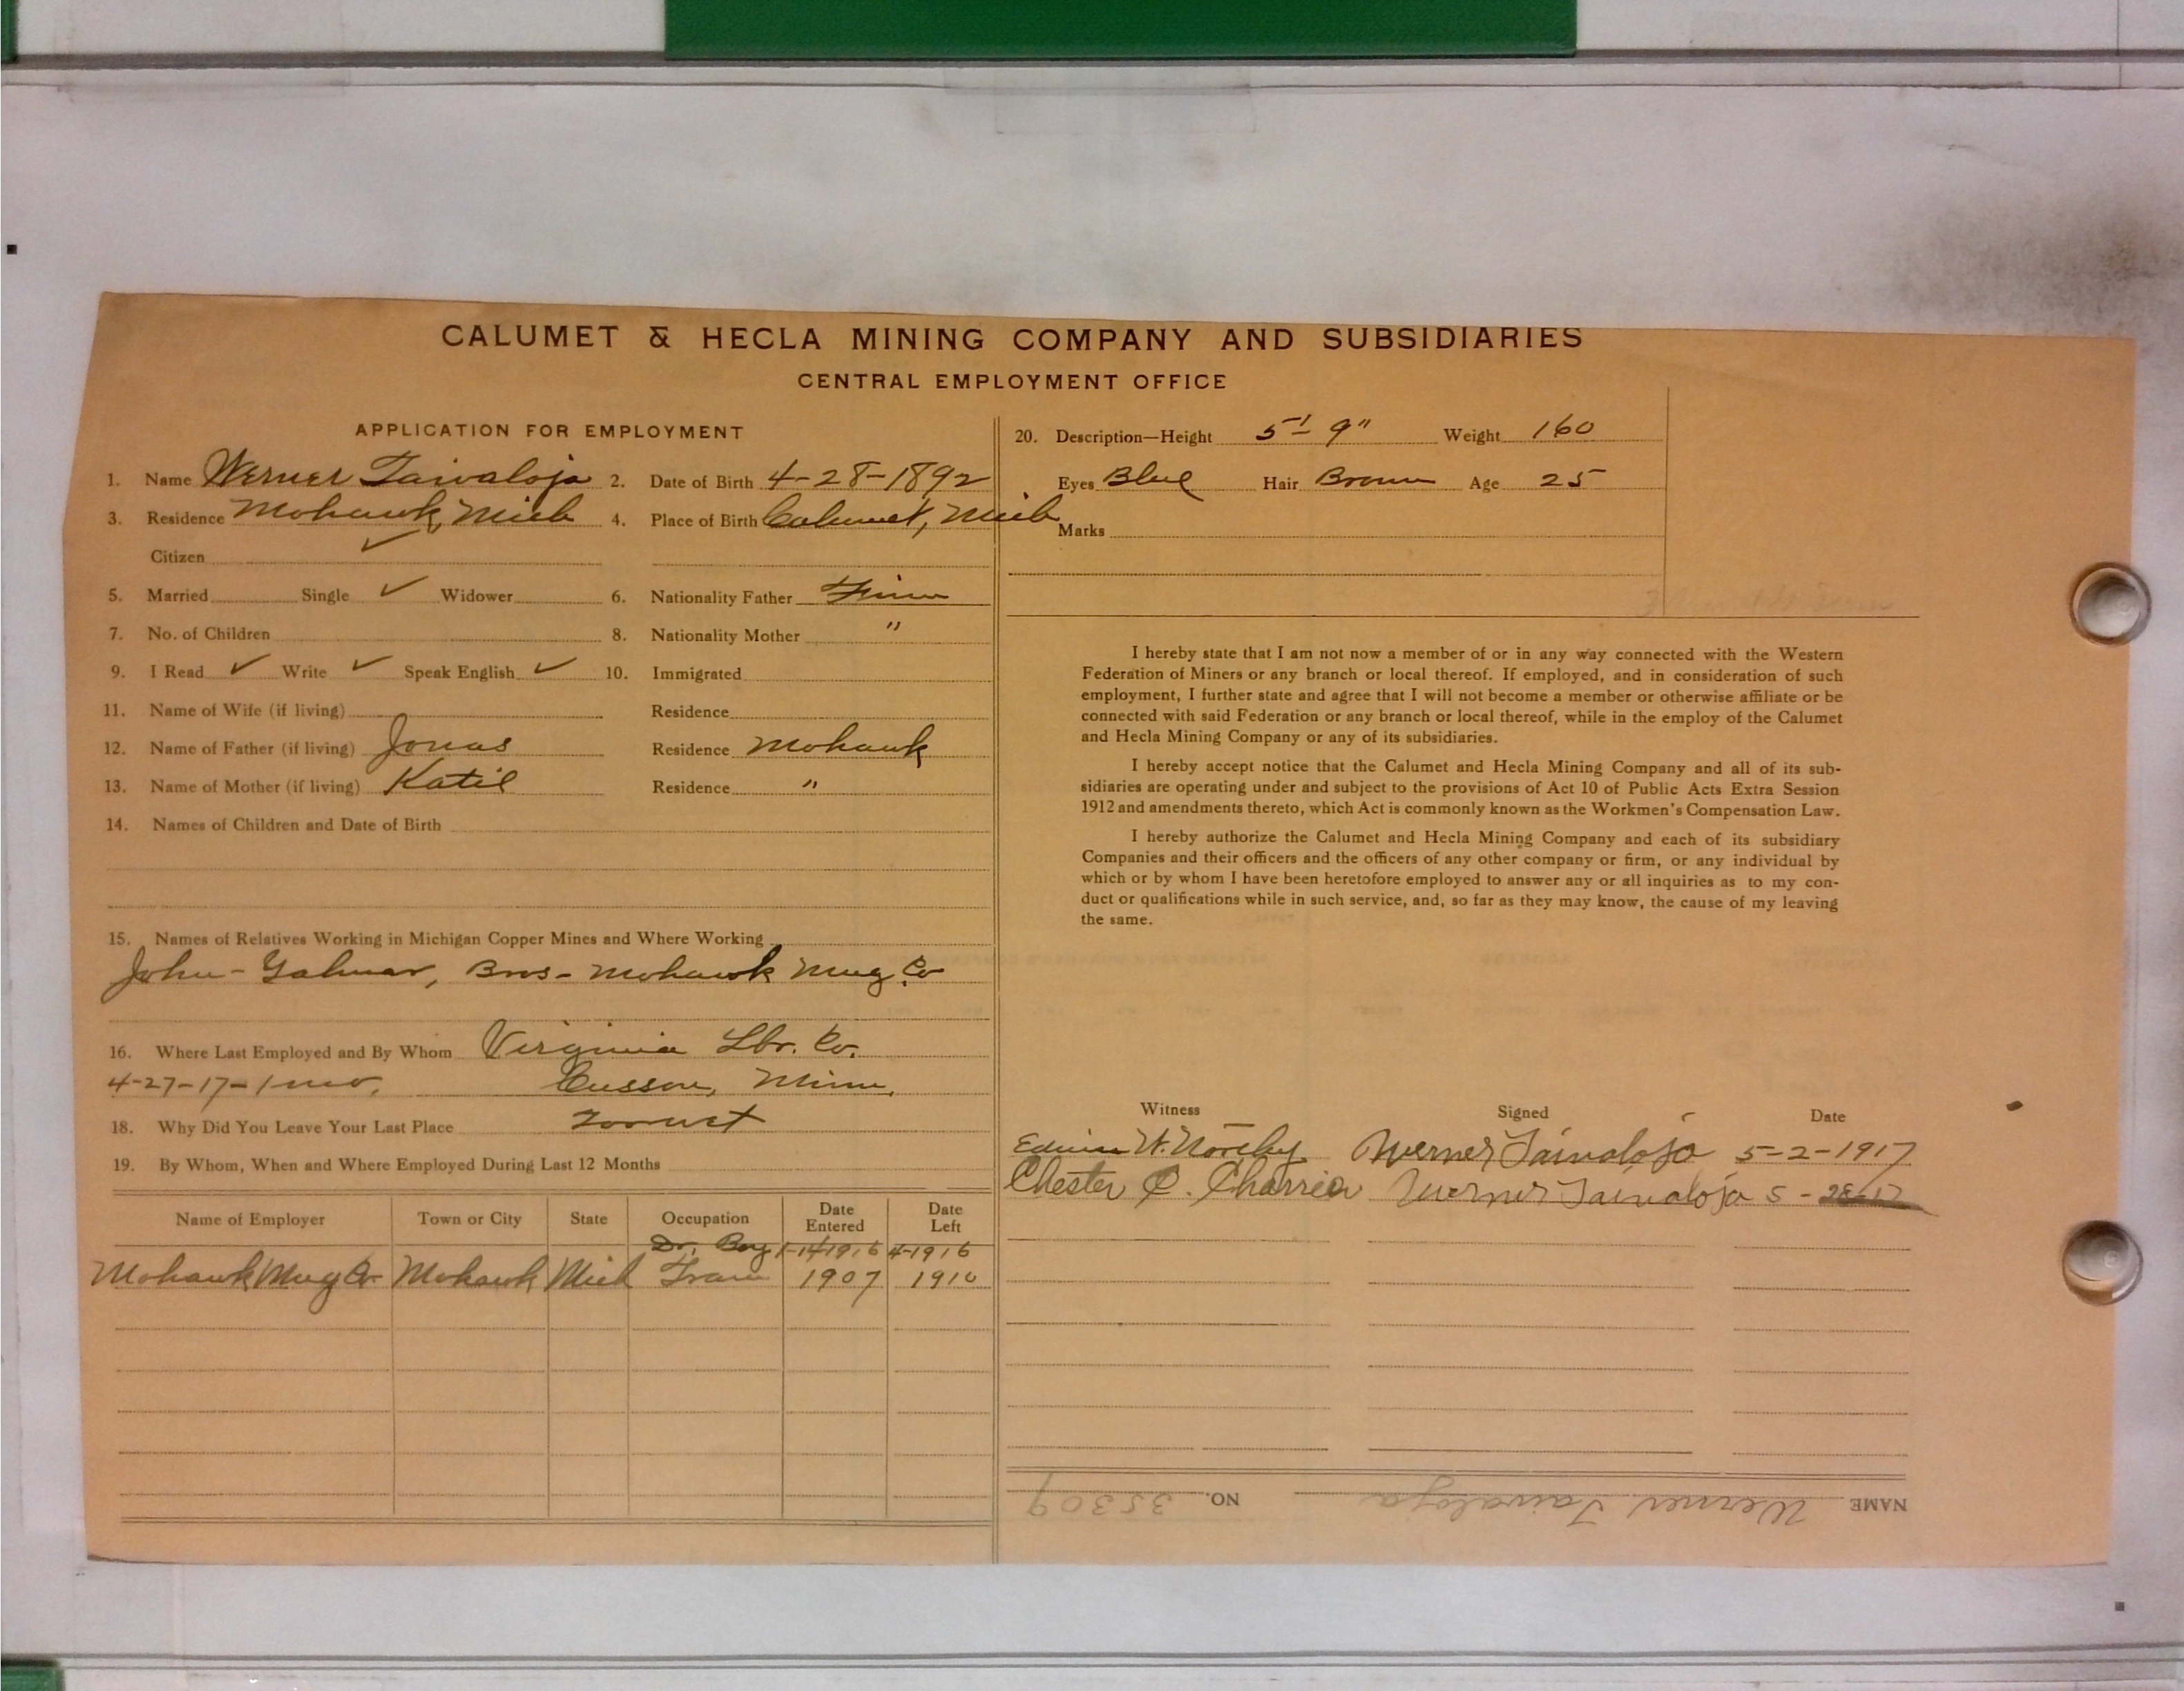 CALUMET & HECLA MINING COMPANY AND SUBSIDIARIES
CENTRAL EMPLOYMENT OFFICE
APPLICATION FOR EMPLOYMENT
1. Name Werner Taivaloja 2. Date of Birth 4-28-1892
3. Residence Mohawk, Mich 4. Place of Birth Calumet, Mich
Citizen ✓
5. Married Single ✓ Widower 6. Nationality Father Finn
7. No. of Children 8. Nationality Mother "
9. I Read ✓ Write ✓ Speak English ✓ 10. Immigrated
11. Name of Wife (if living) Residence
12. Name of Father (if living) Jonas Residence Mohawk
13. Name of Mother (if living) Katie Residence "
14. Names of Children and Date of Birth
15. Names of Relatives Working in Michigan Copper Mines and Where Working
John - Yalmar, Bros - Mohawk Mng. Co
16. Where Last Employed and By Whom Virginia Lbr. Co.
4-27-17-1 mo. Cusson, Minn.
18. Why Did You Leave Your Last Place Too wet
19. By Whom, When and Where Employed During Last 12 Months
Name of Employer Town or City State Occupation Date Entered Date Left
Dr. Boy 1-14-1916 4-1916
Mohawk Mng Co. Mohawk Mich Tram 1907 1910
20. Description—Height 5' 9" Weight 160
Eyes Blue Hair Brown Age 25
Marks
I hereby state that I am not now a member of or in any way connected with the Western
Federation of Miners or any branch or local thereof. If employed, and in consideration of such
employment, I further state and agree that I will not become a member or otherwise affiliate or be
connected with said Federation or any branch or local thereof, while in the employ of the Calumet
and Hecla Mining Company or any of its subsidiaries.
I hereby accept notice that the Calumet and Hecla Mining Company and all of its sub-
sidiaries are operating under and subject to the provisions of Act 10 of Public Acts Extra Session
1912 and amendments thereto, which Act is commonly known as the Workmen's Compensation Law.
I hereby authorize the Calumet and Hecla Mining Company and each of its subsidiary
Companies and their officers and the officers of any other company or firm, or any individual by
which or by whom I have been heretofore employed to answer any or all inquiries as to my con-
duct or qualifications while in such service, and, so far as they may know, the cause of my leaving
the same.
Witness Signed Date
Edwin W. Werner Taivaloja 5-2-1917
Chester C. Werner Taivaloja 5-28-17
NAME Werner Taivaloja NO. 35309